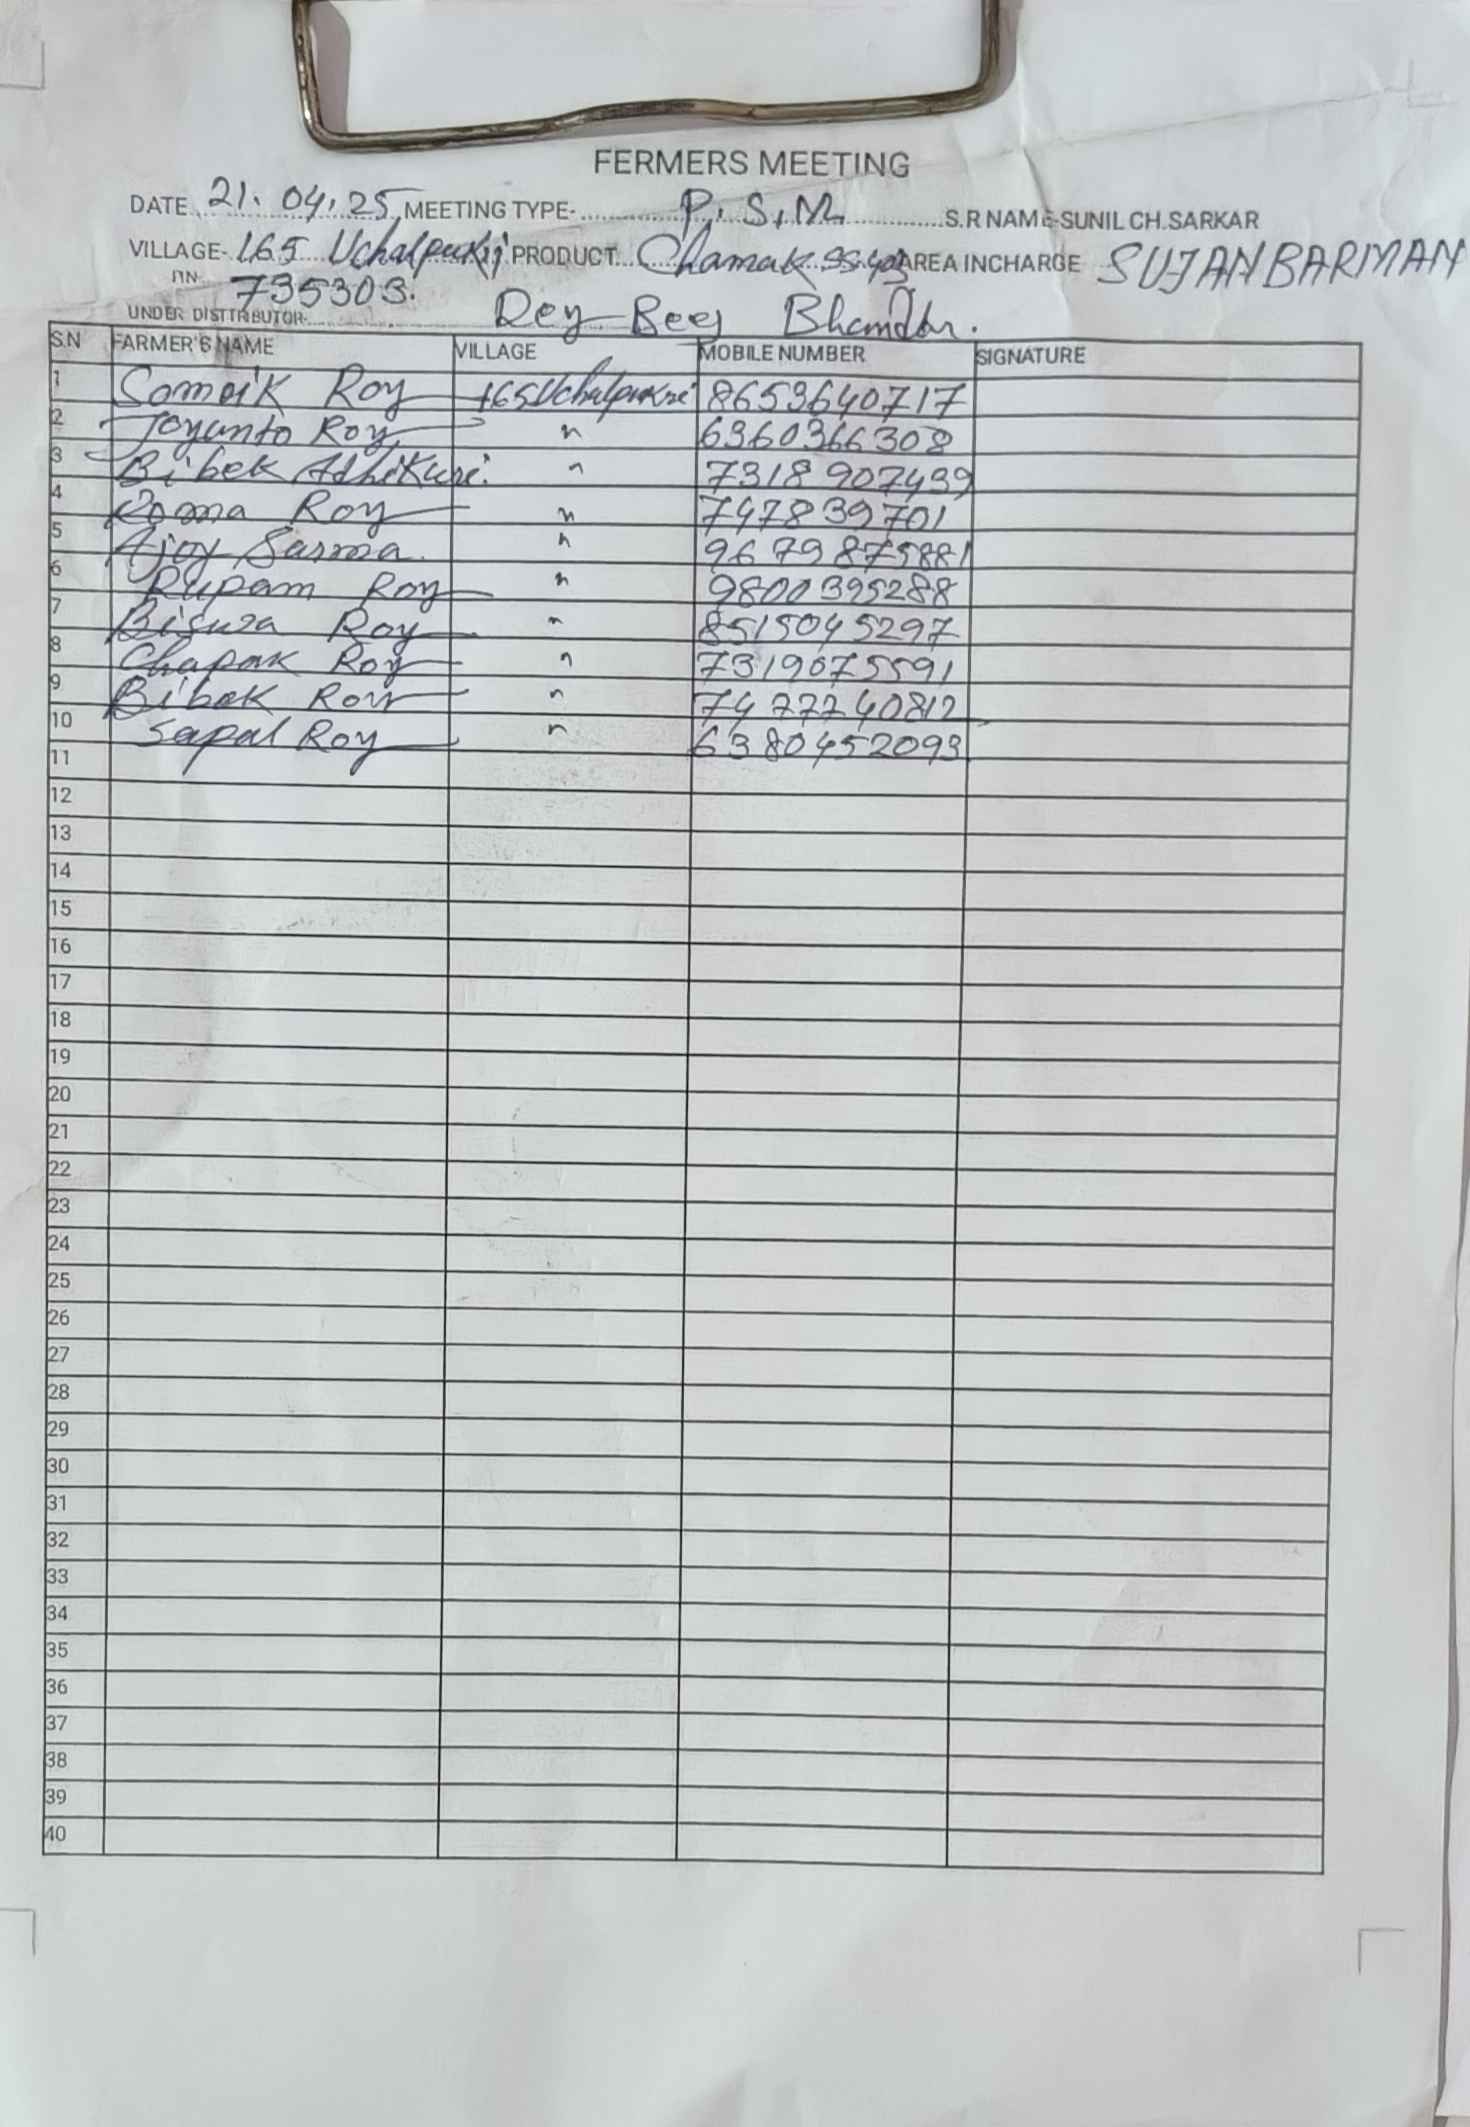 FERMERS MEETING
DATE 21.04.25 MEETING TYPE- P.S.M. S.R NAME-SUNIL CH.SARKAR
VILLAGE- 165 Uchalpukri PRODUCT Chamak SS 403 AREA INCHARGE SUJAN BARMAN
PIN 735303.
UNDER DISTTRIBUTOR- Dey Beej Bhandar.
S.N FARMER'S NAME VILLAGE MOBILE NUMBER SIGNATURE
1 Somoik Roy 165 Uchalpukri 8653640717
2 Joyanto Roy " 6360366308
3 Bibek Adhikari. " 7318907439
4 Roma Roy " 747839701
5 Ajoy Sarma " 9679875881
6 Rupam Roy " 9800395288
7 Roy " 8515045297
8 Chapak Roy " 7319075591
9 Bibek Roy " 7477740812
10 Sapal Roy " 6380452093
11
12
13
14
15
16
17
18
19
20
21
22
23
24
25
26
27
28
29
30
31
32
33
34
35
36
37
38
39
40